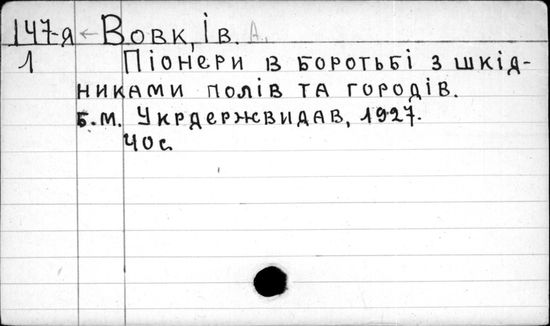 147-я ← Вовк, Ів. А.
1 Піонери в боротьбі з шкід-
никами полів та городів.
Б.М. Укрдержвидав, 1927.
40 с.